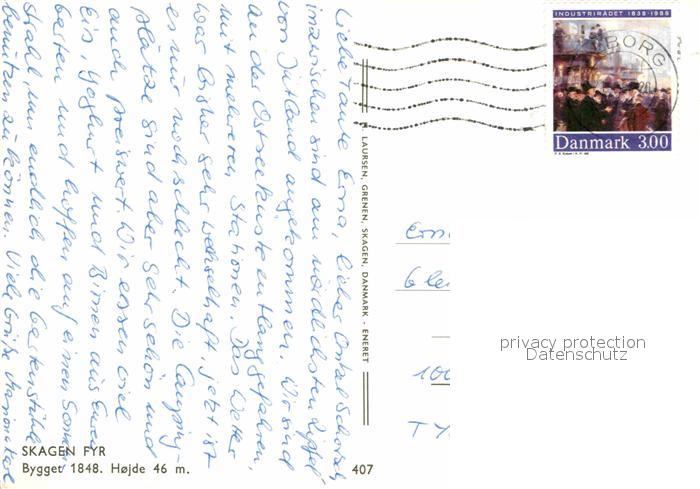 Liebe Tante Erna, lieber Onkel Schorsch,
inzwischen sind am nördlichsten Zipfel
von Jütland angekommen. Wir sind
an der Ostseeküste entlanggefahren,
mit mehreren Stationen. Das Wetter
war bisher sehr wechselhaft, jetzt ist
es nur noch schlecht. Die Camping-
plätze sind aber sehr schön und
auch preiswert. Wir essen viel
Eis, Yoghurt und Birnen aus Eurem
Garten und hoffen auf einen Sonnen
strahl, um endlich die Gartenstühle
benützen zu können. Viele Grüße
SKAGEN FYR
Bygget 1848. Højde 46 m.
407
LAURSEN, GRENEN, SKAGEN, DANMARK - ENERET
INDUSTRIRÅDET 1838-1988
BORG
Danmark 3.00
100
privacy protection
Datenschutz